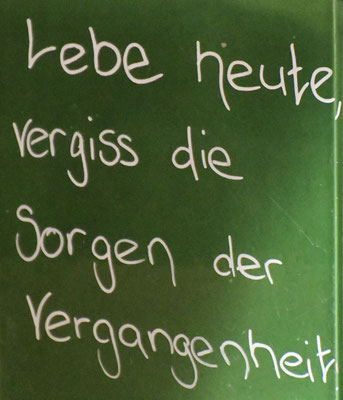 Lebe heute,
vergiss die
Sorgen der
Vergangenheit